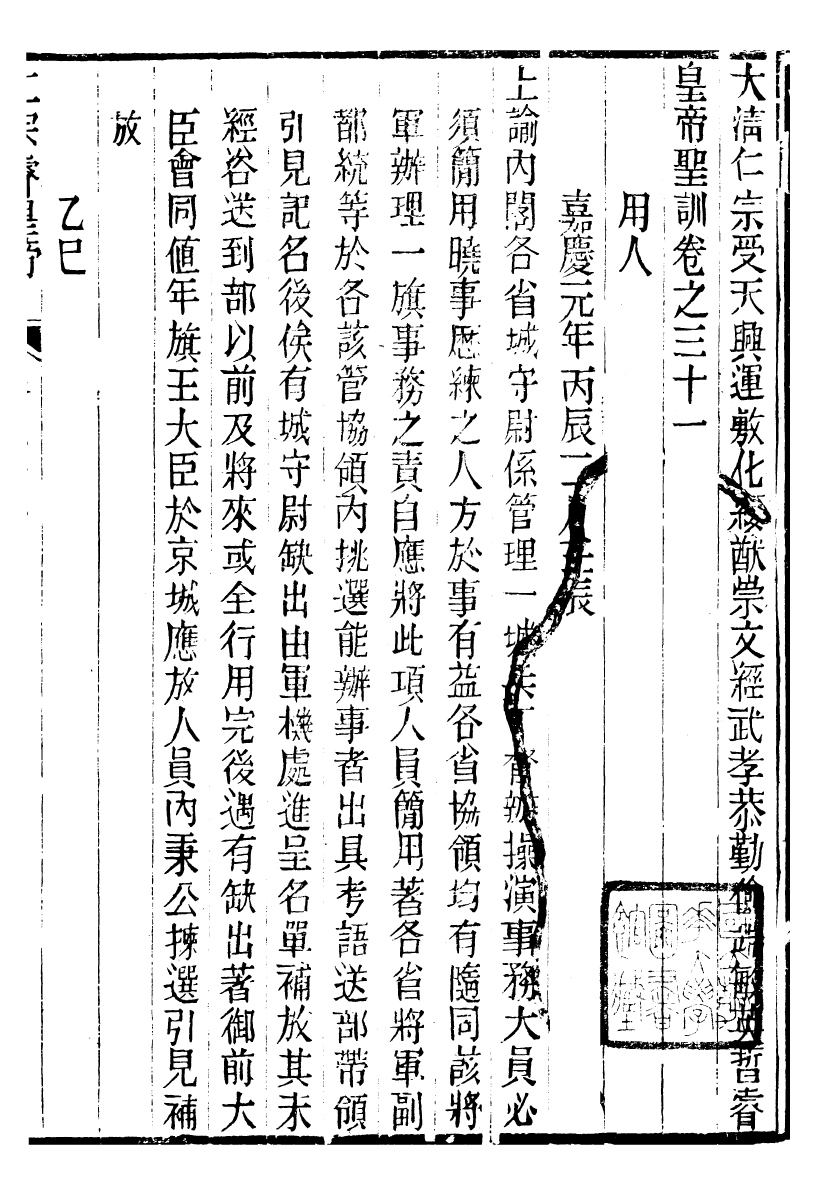 大清仁宗受天興運敷化綏猷崇文經武孝恭勤儉端敏英哲睿
皇帝聖訓卷之三十一
用人
嘉慶元年丙辰二月壬辰
上諭內閣各省城守尉係管理一城兵丁督辦操演事務大員必
須簡用曉事歷練之人方於事有益各省協領均有隨同該將
軍辦理一旗事務之責自應將此項人員簡用著各省將軍副
都統等於各該管協領內挑選能辦事者出具考語送部帶領
引見記名後俟有城守尉缺出由軍機處進呈名單補放其未
經咨送到部以前及將來或全行用完後遇有缺出著御前大
臣會同値年旗王大臣於京城應放人員內秉公揀選引見補
放
乙巳
仁宗睿皇帝